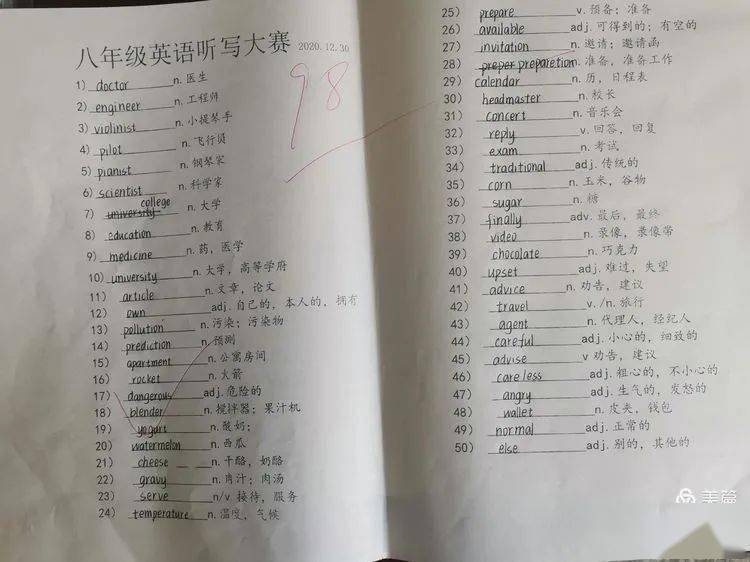 八年级英语听写大赛 2020.12.30
98
1) doctor n. 医生
2) engineer n. 工程师
3) violinist n. 小提琴手
4) pilot n. 飞行员
5) pianist n. 钢琴家
6) scientist n. 科学家
7) university college n. 大学
8) education n. 教育
9) medicine n. 药, 医学
10) university n. 大学, 高等学府
11) article n. 文章, 论文
12) own adj. 自己的, 本人的, 拥有
13) pollution n. 污染; 污染物
14) prediction n. 预测
15) apartment n. 公寓房间
16) rocket n. 火箭
17) dangerous adj. 危险的
18) blender n. 搅拌器; 果汁机
19) yogurt n. 酸奶;
20) watermelon n. 西瓜
21) cheese n. 干酪, 奶酪
22) gravy n. 肉汁; 肉汤
23) serve n/v 接待, 服务
24) temperature n. 温度, 气候
25) prepare v. 预备; 准备
26) available adj. 可得到的; 有空的
27) invitation n. 邀请; 邀请函
28) preper preparetion n. 准备, 准备工作
29) calendar n. 历, 日程表
30) headmaster n. 校长
31) concert n. 音乐会
32) reply v. 回答, 回复
33) exam n. 考试
34) traditional adj. 传统的
35) corn n. 玉米, 谷物
36) sugar n. 糖
37) finally adv. 最后, 最终
38) video n. 录像, 录像带
39) chocolate n. 巧克力
40) upset adj. 难过, 失望
41) advice n. 劝告, 建议
42) travel v./n. 旅行
43) agent n. 代理人, 经纪人
44) careful adj. 小心的, 细致的
45) advise v 劝告, 建议
46) careless adj. 粗心的, 不小心的
47) angry adj. 生气的, 发怒的
48) wallet n. 皮夹, 钱包
49) normal adj. 正常的
50) else adj. 别的, 其他的
美篇